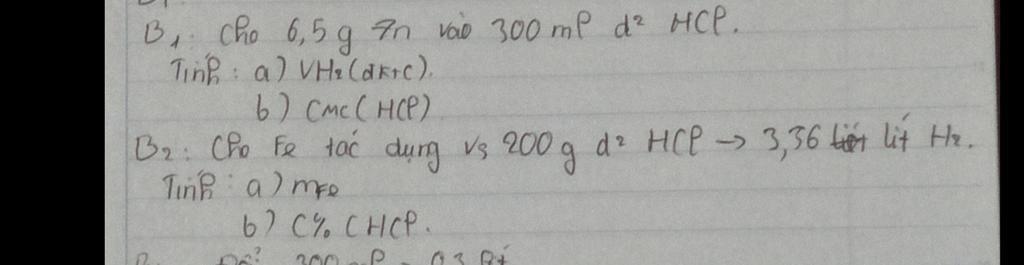 B1: Cho 6,5g Zn vào 300ml d² HCl.
Tính: a) VH2(đktc).
b) CMC(HCl)
B2: Cho Fe tác dụng vs 200g d² HCl → 3,36 lít H2.
Tính: a) mFe
b) C% CHCl.